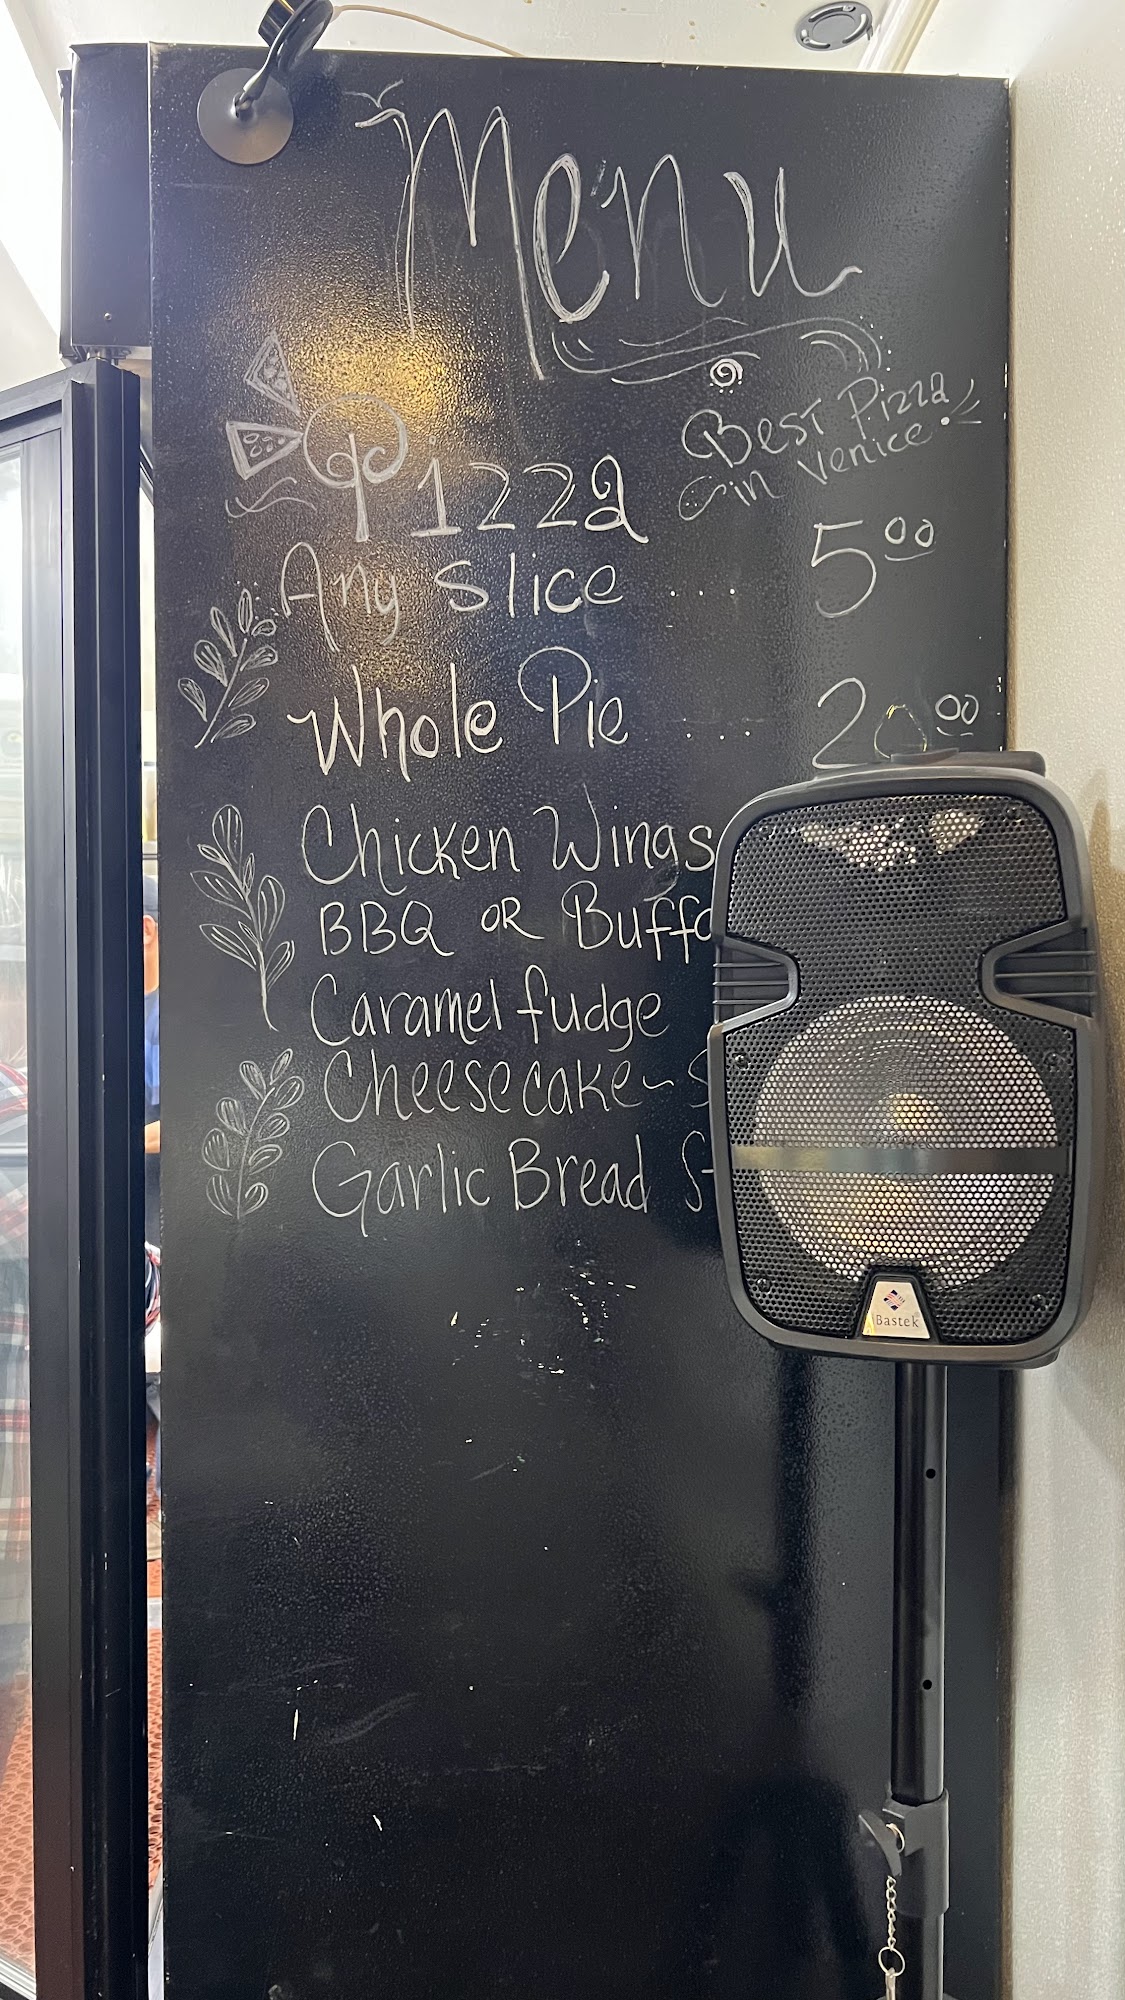 Menu
Best Pizza
in Venice
Pizza
Any slice ... 5.00
Whole Pie ... 20.00
Chicken Wings
BBQ OR Buffa
Caramel fudge
Cheesecake~ S
Garlic Bread St
Bastek